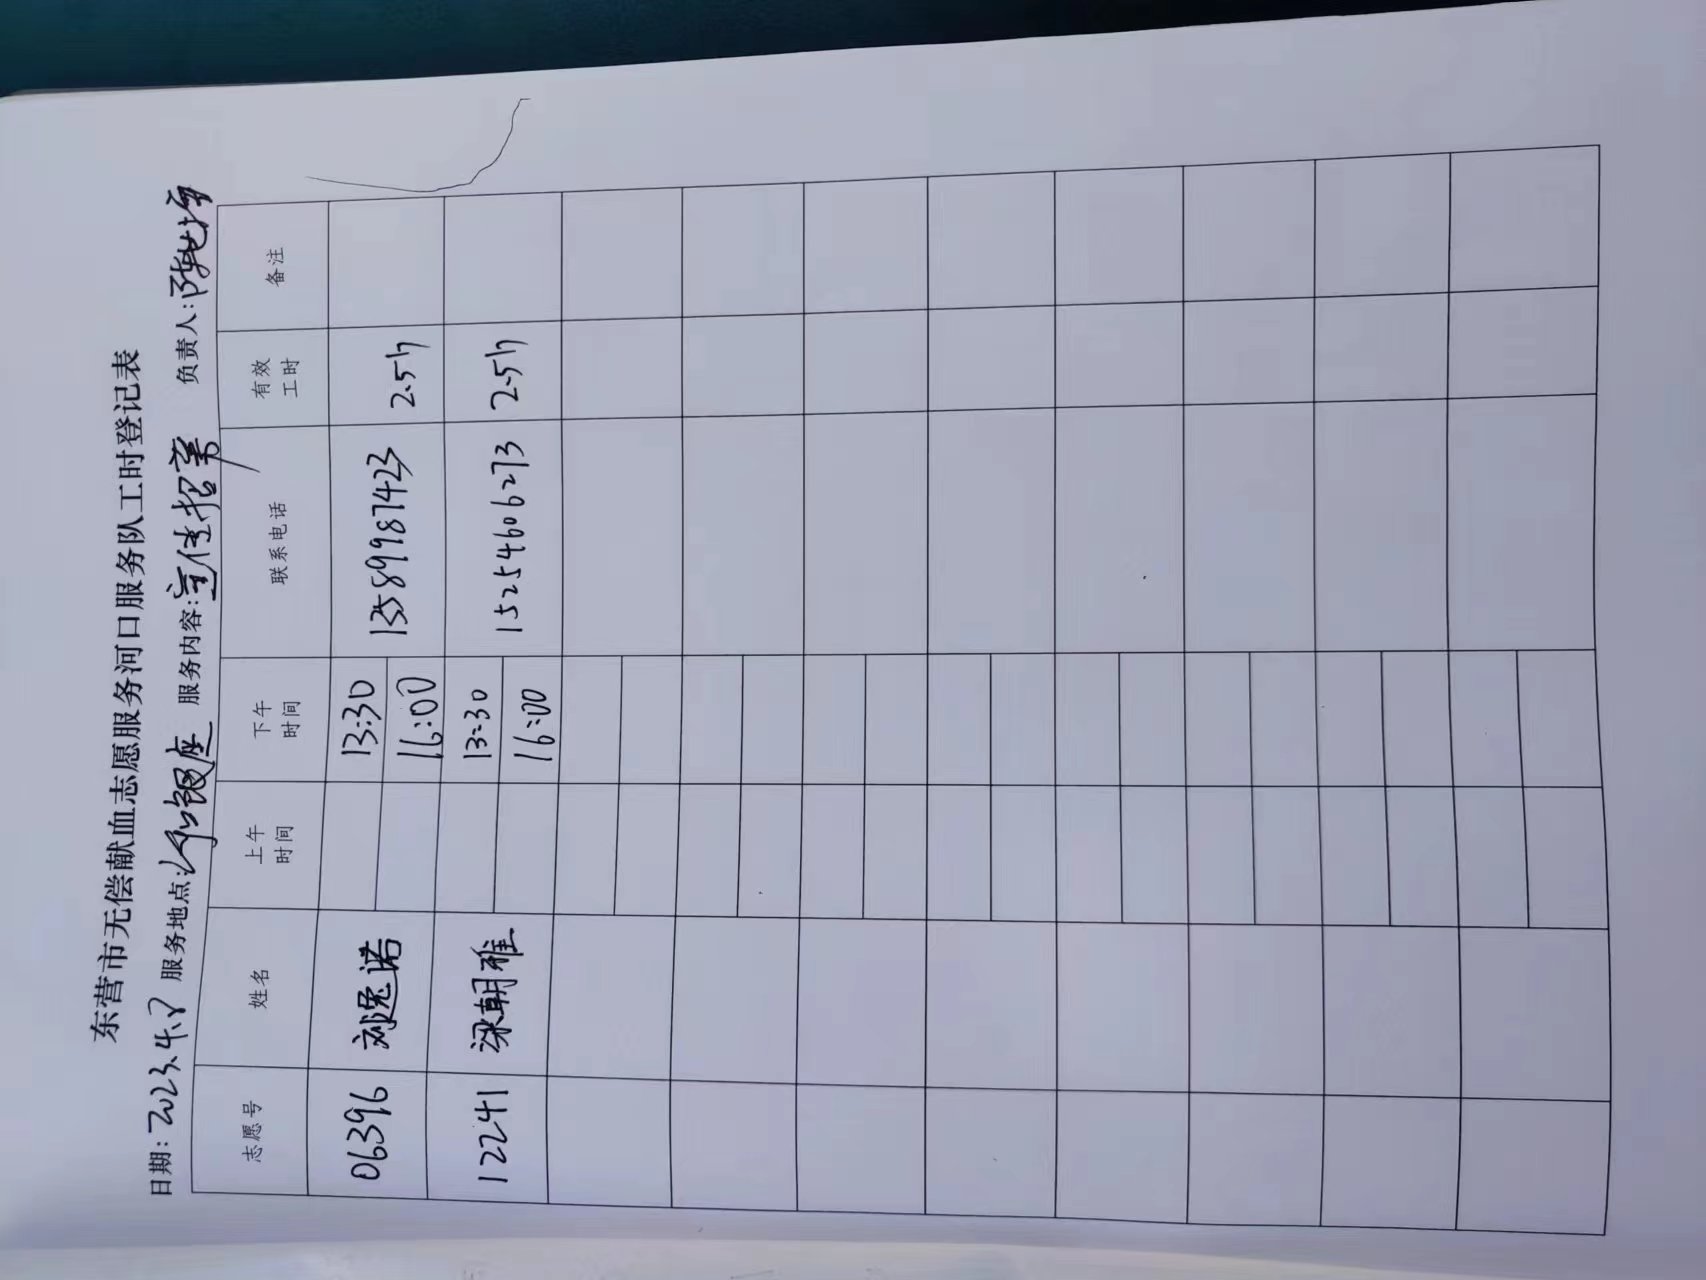 东营市无偿献血志愿服务河口服务队工时登记表
日期:2023.4.8 服务地点: 银座 服务内容:宣传招募 负责人:陈
志愿号 姓名 上午时间 下午时间 联系电话 有效工时 备注
06396 刘逸诺 13:30 16:00 13589987423 2.5h
12241 梁朝雅 13:30 16:00 15254606273 2.5h